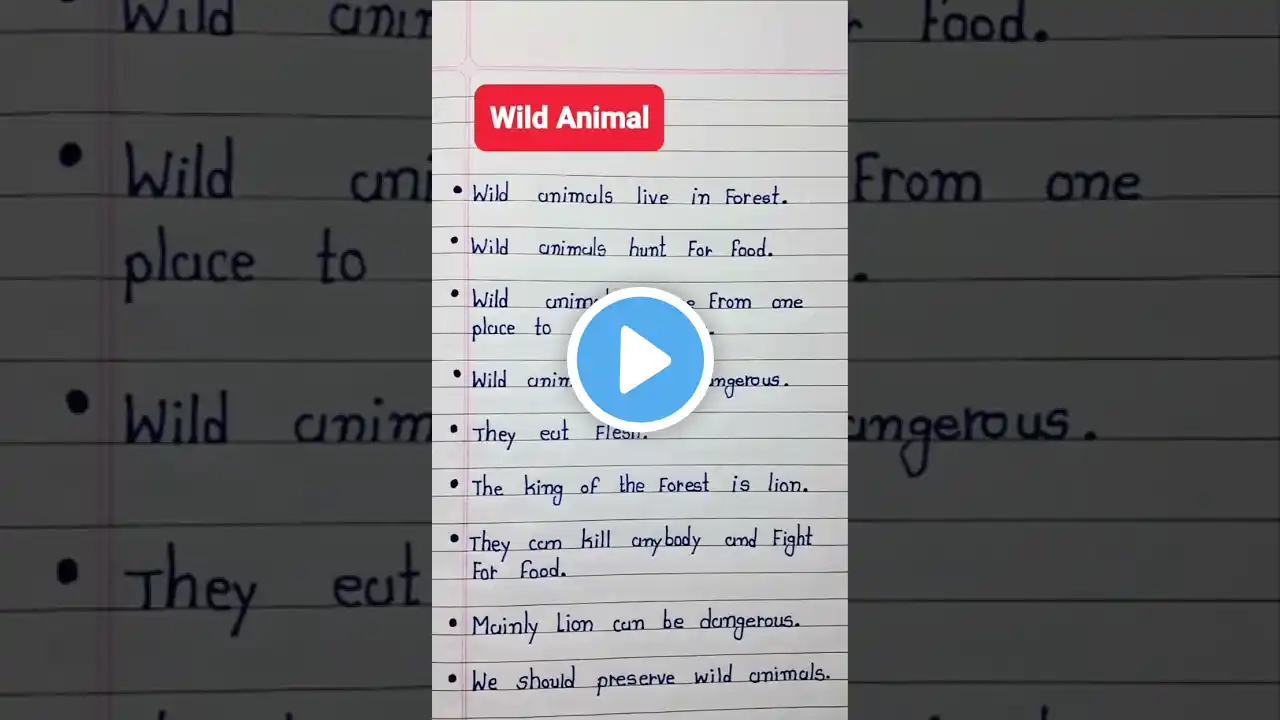 Wild Animal
• Wild animals live in Forest.
• Wild animals hunt For food.
• Wild From one
place to
• Wild
• They eat Flesh.
• The king of the Forest is lion.
• They can kill anybody and Fight
For food.
• Mainly Lion can be dangerous.
• We should preserve wild animals.
Wild food.
• Wild From one
place to
• Wild
• They eat